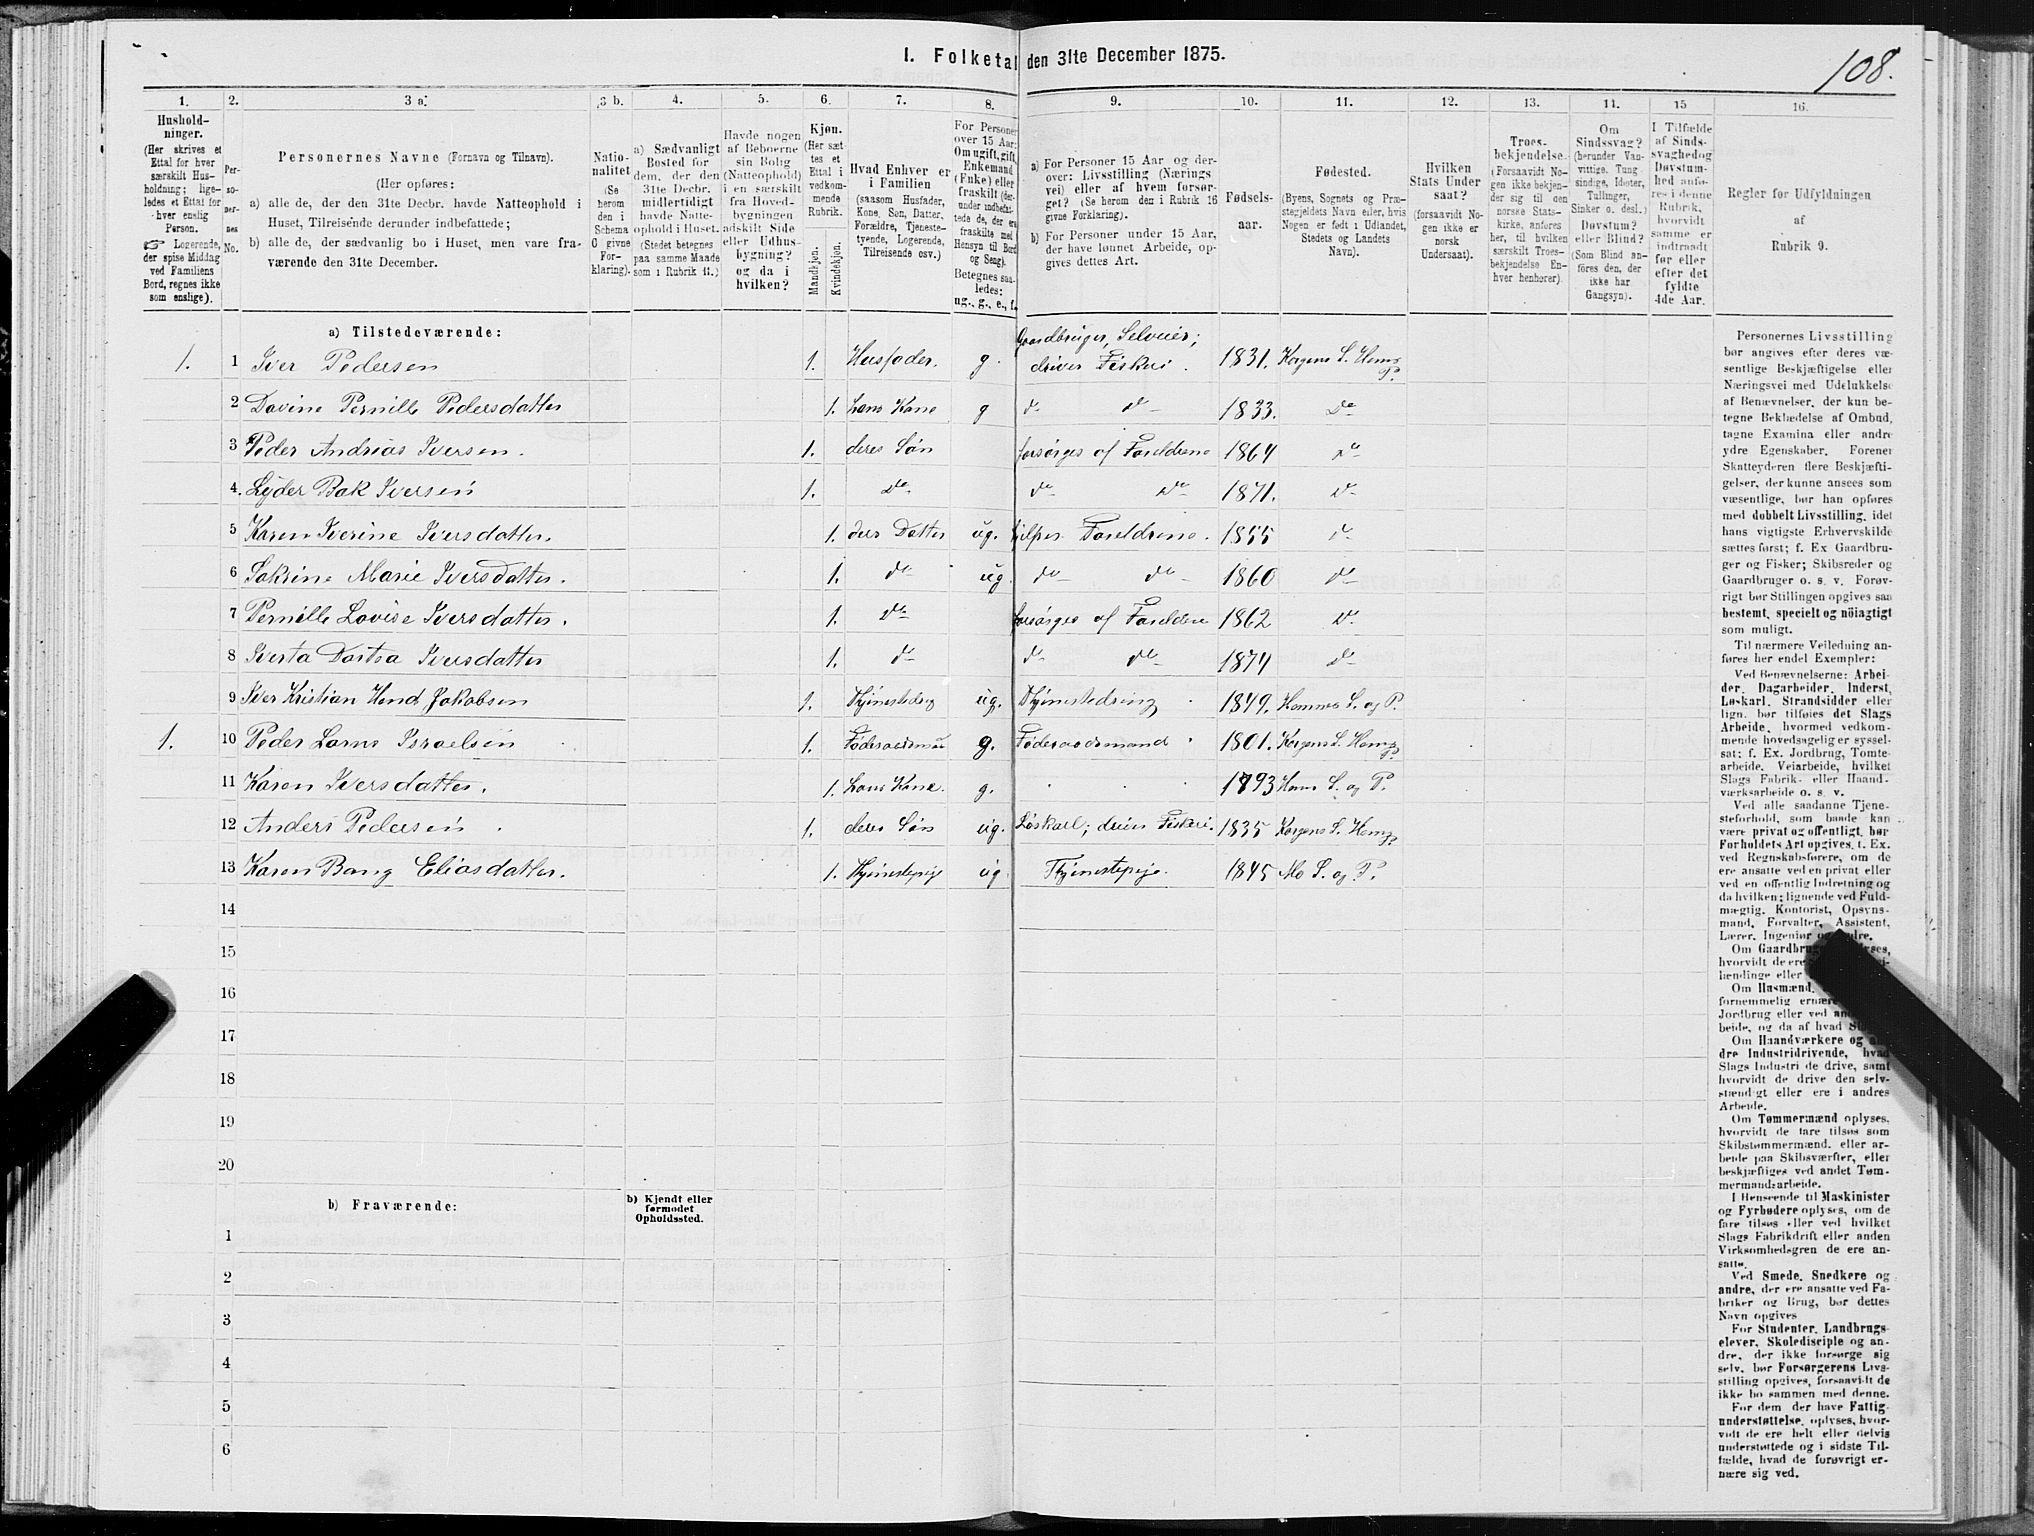 108.
1. Folketal den 31te December 1875.
1. 2. 3 a. 3 b. 4. 5. 6. 7. 8. 9. 10. 11. 12. 13. 14. 15 16.
Hushold-
ninger.
(Her skrives et
Ettal for hver
særskilt Hus-
holdning; lige-
ledes et Ettal for
hver enslig
Person.
☞ Logerende,
der spise Middag
ved Familiens
Bord, regnes ikke
som enslige).
Per-
so-
ner-
nes
No.
Personernes Navne (Fornavn og Tilnavn).
(Her opføres:
a) alle de, der den 31te Decbr. havde Natteophold i
Huset, Tilreisende derunder indbefattede;
b) alle de, der sædvanlig bo i Huset, men vare fra-
værende den 31te December.
Natio-
nalitet
(Se
herom
den i
Schema
C givne
For-
klaring).
a) Sædvanligt
Bosted for
dem, der den
31te Decbr.
midlertidigt
havde Natte-
ophold i Huset.
(Stedet betegnes
paa samme Maade
som i Rubrik 11.)
Havde nogen
af Beboerne
sin Bolig
(Natteophold)
i en særskilt
fra Hoved-
bygningen
adskilt Side
eller Udhus-
bygning?
og da i
hvilken?
Kjøn.
(Her sæt-
tes et
Ettal i
vedkom-
mende
Rubrik.
Mandkjøn.
Kvindekjøn.
Hvad Enhver er
i Familien
(saasom Husfader,
Kone, Søn, Datter,
Forældre, Tjeneste-
tyende, Logerende,
Tilreisende osv.)
For Personer
over 15 Aar:
Om ugift, gift,
Enkemand
(Enke) eller
fraskilt (der-
under indbefat-
tede de, der ere
fraskilte med
Hensyn til Bord
og Seng).
Betegnes saa-
ledes:
ug., g., e., f.
a) For Personer 15 Aar og der-
over: Livsstilling (Nærings-
vei) eller af hvem forsør-
get? (Se herom den i Rubrik 16
givne Forklaring).
b) For Personer under 15 Aar,
der have lønnet Arbeide, op-
gives dettes Art.
Fødsels-
aar.
Fødested.
(Byens, Sognets og Præ-
stegjeldets Navn eller, hvis
Nogen er født i Udlandet,
Stedets og Landets
Navn).
Hvilken
Stats Under
saat?
(forsaavidt No-
gen ikke er
norsk
Undersaat).
Troes-
bekjendelse.
(Forsaavidt No-
gen ikke bekjen-
der sig til den
norske Stats-
kirke, anføres
her, til hvilken
særskilt Troes-
bekjendelse En-
hver henhører).
Om
Sindssvag?
(herunder Van-
vittige, Tung
sindige, Idioter,
Tullinger,
Sinker o. desl.)
Døvstum?
eller Blind?
(Som Blind an-
føres den, der
ikke har
Gangsyn).
I Tilfælde
af Sinds-
svaghed og
Døvstum-
hed anfø-
res i denne
Rubrik,
hvorvidt
samme er
indtraadt
før eller
efter det
fyldte
4de Aar.
Regler for Udfyldningen
af
Rubrik 9.
a) Tilstedeværende:
1. 1 Iver Pedersen 1. Husfader. g. Gaardbruger, Selveier; driver Fiskeri. 1831. Korgens S. Hems P.
2 Davine Pernille Pedersdatter 1. hans Kone g do do 1833. Do
3 Peder Andrias Iversen. 1. deres Søn forsørges af Forældrene 1864 do
4. Lyder Bak Iversen 1. do do do 1871. do
5 Karen Iverine Iversdatter. 1. ders Datter ug. hjelper Foreldrene. 1855 do
6 Sakrine Marie Iversdatter. 1. do ug do do 1860 do
7 Pernille Lovise Iversdatter. 1. do forsørges af Foreldrene 1862 do
8 Iverta Dortea Iversdatter 1. do do do 1874 do
9 Iver Kristian Hend Jakobsen 1. Thjenestedreng ug. Thjenestedreng 1849. Hemnes S. og P.
1. 10 Peder Larns Israelsen 1. Føderaadsman g. Føderaadsmand 1801. Korgens S. Hems P.
11 Karen Iversdatter. 1. hans Kone. g. 1793 Hems S. og P.
12 Anders Pedersen 1. deres Søn ug. Løskarl; driver Fiskeri. 1835 Korgens S. Hems P.
13 Karen Bang Eliasdatter. 1. Thjenestepige ug Thjenestepige. 1845 Mo S. og P.
14
15
16
17
18
19
20
b) Fraværende:
b) Kjendt eller
formodet
Opholdssted.
1
2
3
4
5
6
Personernes Livsstilling
bør angives efter deres væ-
sentlige Beskjæftigelse eller
Næringsvei med Udelukkelse
af Benævnelser, der kun be-
tegne Beklædelse af Ombud,
tagne Examina eller andre
ydre Egenskaber. Forener
Skatteyderen flere Beskjæfti-
gelser, der kunne ansees som
væsentlige, bør han opføres
med dobbelt Livsstilling, idet
hans vigtigste Erhvervskilde
sættes først; f. Ex Gaardbru-
ger og Fisker; Skibsreder og
Gaardbruger o. s. v. Forøv-
rigt bør Stillingen opgives saa
bestemt, specielt og nöiagtigt
som muligt.
Til nærmere Veiledning an-
føres her endel Exempler:
Ved Benævnelserne: Arbei-
der, Dagarbeider, Inderst,
Løskarl, Strandsidder eller
lign. bør tilføies det Slags
Arbeide, hvormed vedkom-
mende hovedsagelig er syssel-
sat; f. Ex. Jordbrug, Tomte-
arbeide, Veiarbeide, hvilket
Slags Fabrik- eller Haand-
værksarbeide o. s. v.
Ved alle saadanne Tjene-
steforhold, som baade kan
være privat og offentligt, bør
Forholdets Art opgives, t. Ex.
ved Regnskabsførere, om de
ere ansatte ved en privat eller
ved en offentlig Indretning og
da hvilken; lignende ved Fuld-
mægtig, Kontorist, Opsyns-
mand, Forvalter, Assistent,
Lærer, Ingeniør og andre.
Om Gaardbru
hvorvidt de ere
lændinge eller
Om Husmænd,
fornemmelig ernære
Jordbrug eller ved an
beide, og da af hvad S
Om Haandværkere og an-
dre Industridrivende, hvad
Slags Industri de drive, samt
hvorvidt de drive den selv-
stændigt eller ere i andres
Arbeide.
Om Tømmermænd oplyses,
hvorvidt de fare tilsøs som
Skibstømmermænd, eller ar-
beide paa Skibsværfter, eller
beskjæftiges ved andet Tøm-
mermandsarbeide.
I Henseende til Maskinister
og Fyrbødere oplyses, om de
fare tilsøs eller ved hvilket
Slags Fabrikdrift eller anden
Virksomhedsgren de ere an-
satte.
Ved Smede, Snedkere og
andre, der ere ansatte ved Fa-
briker og Brug, bør dettes
Navn opgives
For Studenter, Landbrugs-
elever, Skoledisciple og an-
dre, der ikke forsørge sig
selv, bør Forsørgerens Livs-
stilling opgives, forsaavidt de
ikke bo sammen med denne.
For dem der have Fattig-
understøttelse, oplyses, hvor-
vidt de ere helt eller delvis
understøttede og i sidste Til-
fælde, hvad de forøvrigt er-
nære sig ved.